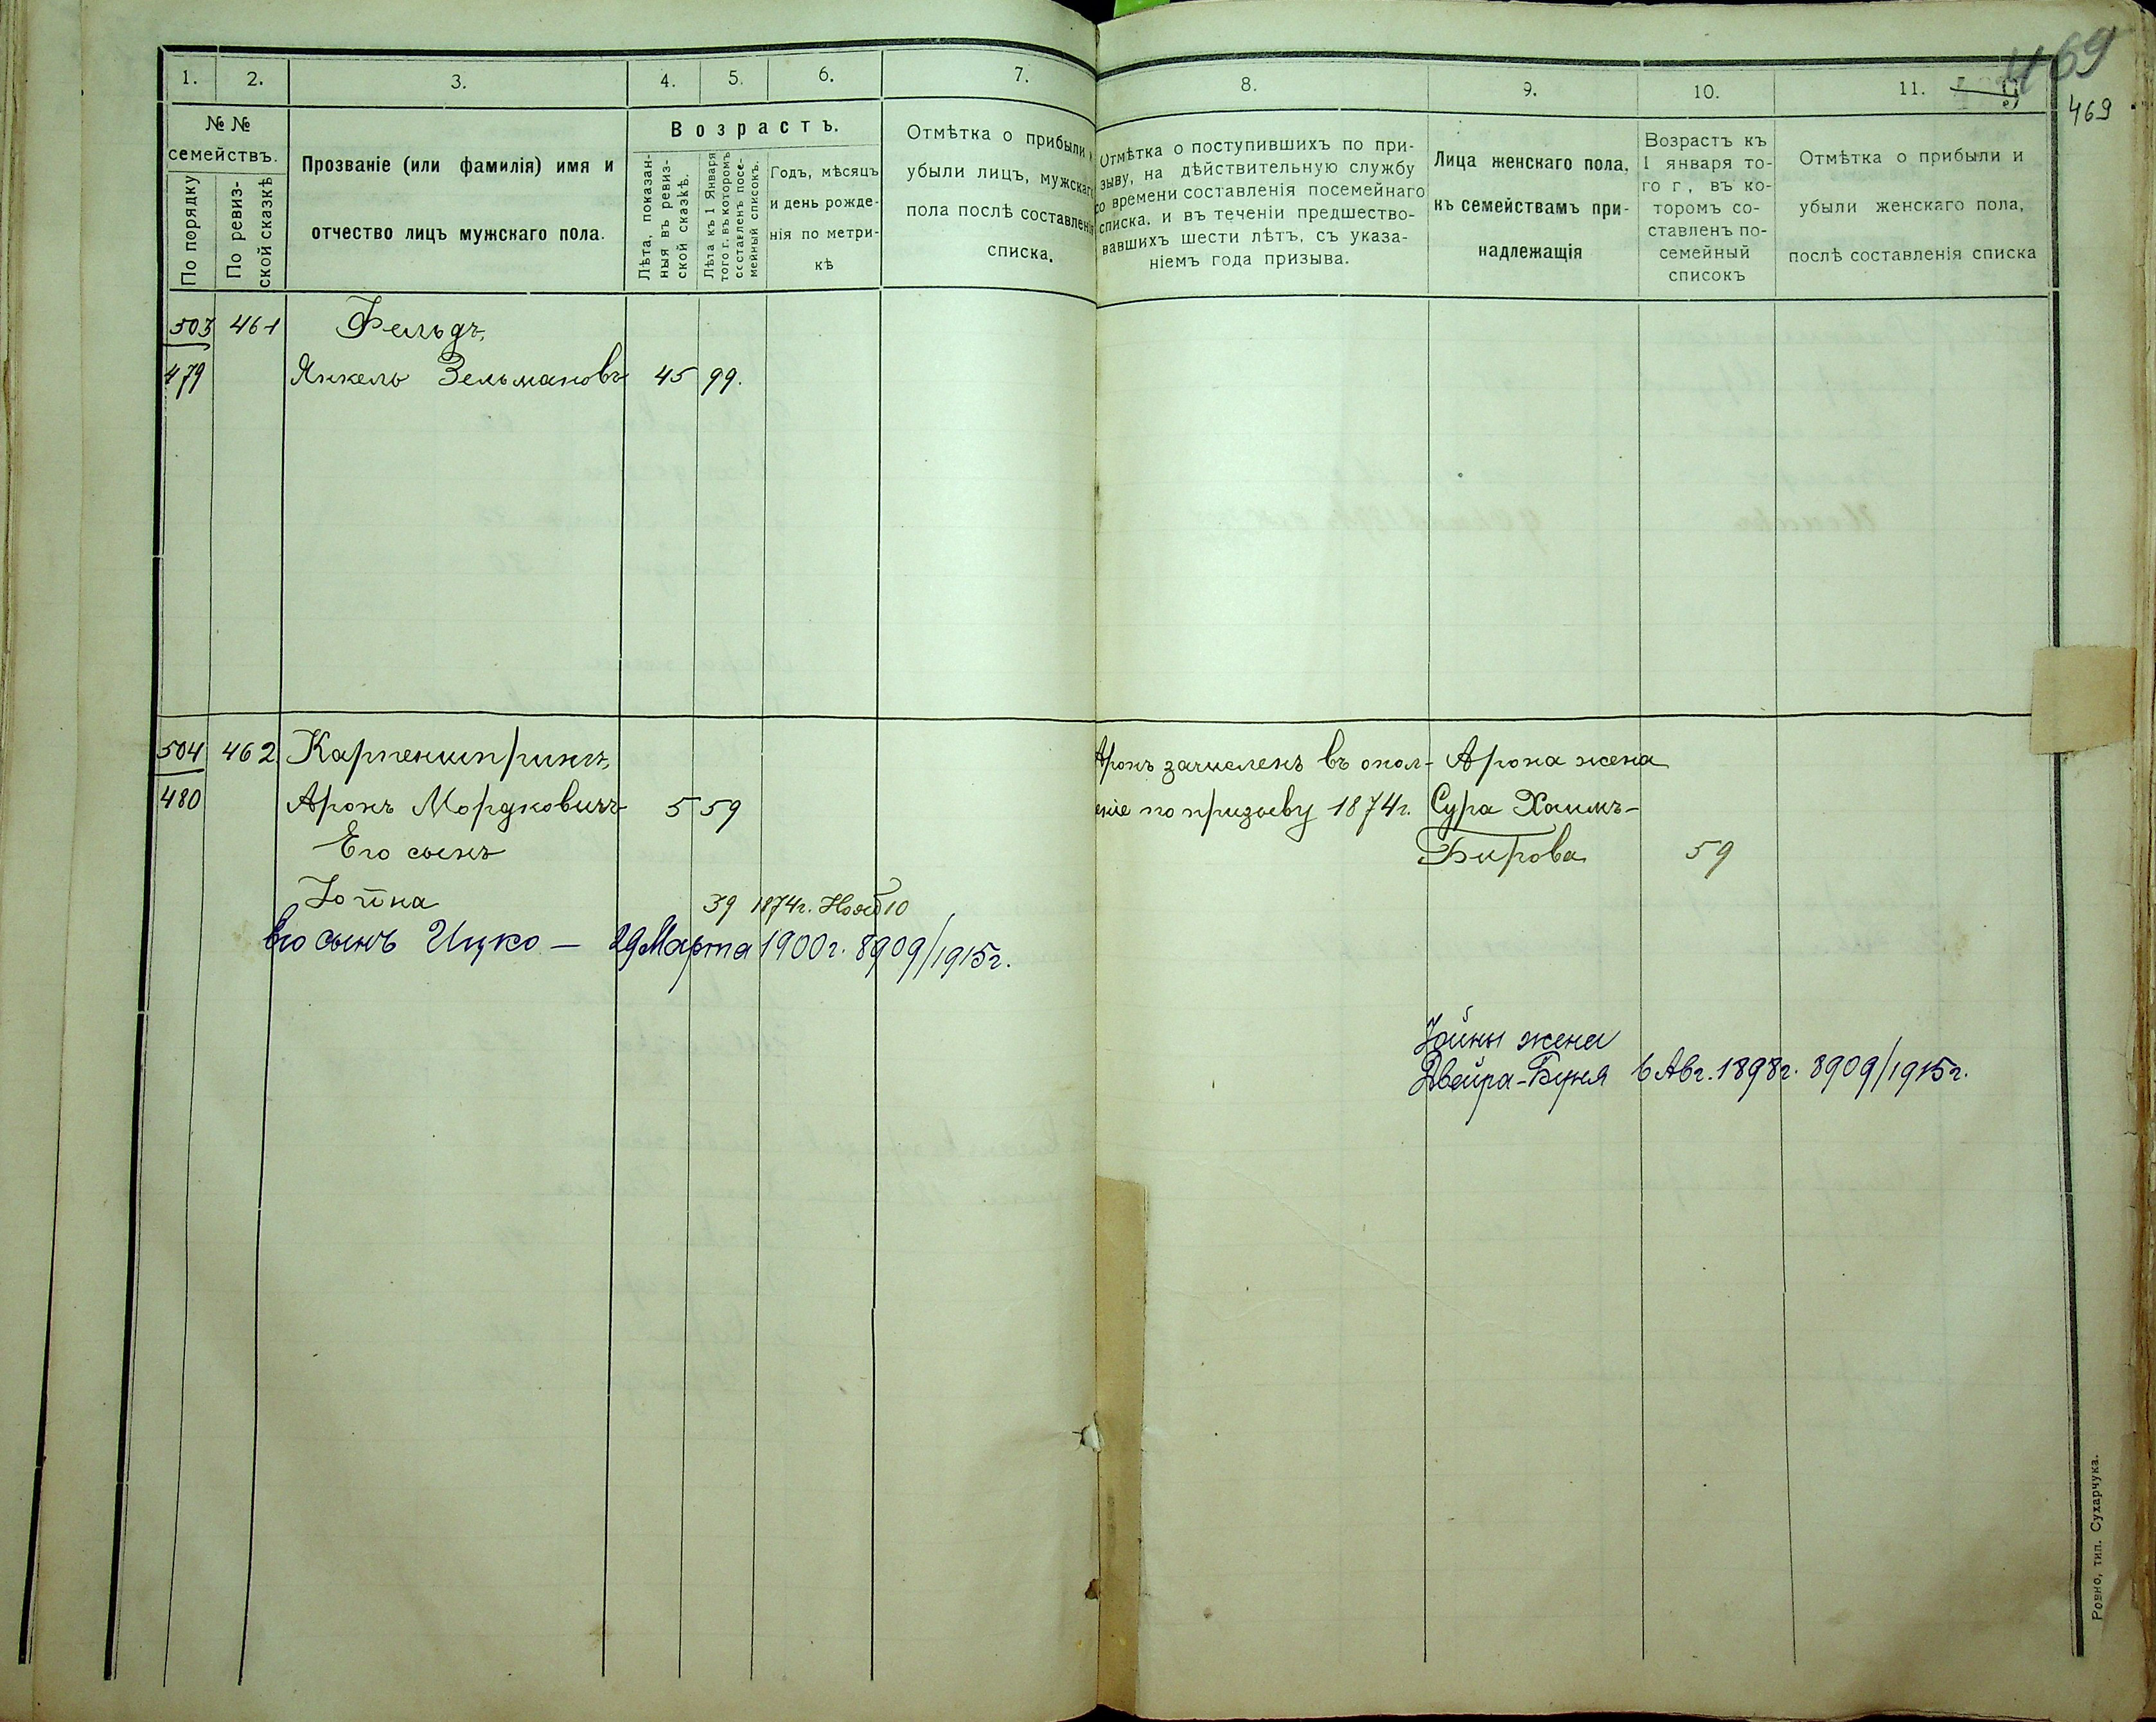 469
469
1. 2. 3. 4. 5. 6. 7. 8. 9. 10. 11.
№ №
семействъ.
По порядку
По ревиз-
ской сказкѣ
Прозваніе (или фамилія) имя и
отчество лицъ мужскаго пола.
Возрастъ.
Лѣта, показан-
ныя въ ревиз-
ской сказкѣ.
Лѣта къ 1 Января
того г. въ которомъ
составленъ посе-
мейный списокъ.
Годъ, мѣсяцъ
и день рожде-
нія по метри-
кѣ
Отмѣтка о прибыли и
убыли лицъ, мужскаго
пола послѣ составленія
списка.
Отмѣтка о поступившихъ по при-
зыву, на дѣйствительную службу
со времени составленія посемейнаго
списка, и въ теченіи предшество-
вавшихъ шести лѣтъ, съ указа-
ніемъ года призыва.
Лица женскаго пола,
къ семействамъ при-
надлежащія
Возрастъ къ
1 января то-
го г, въ ко-
торомъ со-
ставленъ по-
семейный
списокъ
Отмѣтка о прибыли и
убыли женскаго пола,
послѣ составленія списка
503 461 Фельдъ,
479 Янкель Зельмановъ 45 99.
504 462 Карпенштринъ, Аронъ зачисленъ въ опол- Арона жена
480 Аронъ Мордковичъ 5 59 еніе по призыву 1874г. Сура Хаимъ-
Его сынъ Бирова 59
Іойна 39 1874г. Нояб 10
Его сынъ Ицко — 29 Марта 1900г. 8909/1915г.
Іойны жена
Двейра-Буня 6 Авг. 1898г. 8909/1915г.
Ровно, тип. Сухарчука.